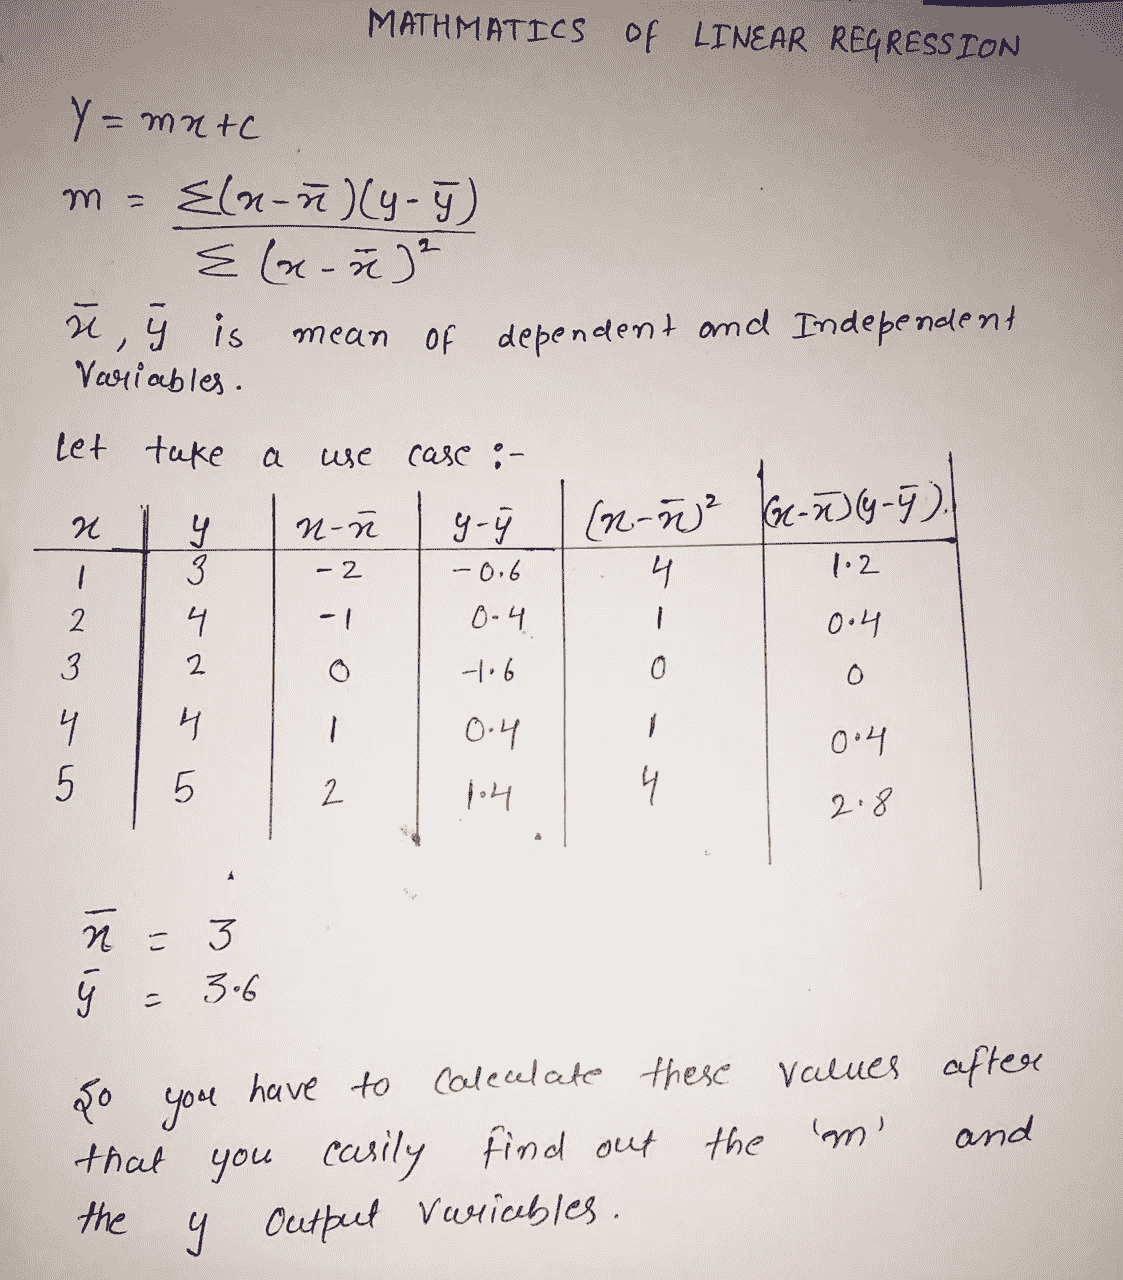 MATHMATICS OF LINEAR REGRESSION
Y = mx+c
m = Σ(x-x̄)(y-ȳ)
Σ(x-x̄)²
x̄, ȳ is mean of dependent and Independent
Variables.
Let take a use case :-
x y x-x̄ y-ȳ (x-x̄)² (x-x̄)(y-ȳ).
1 3 -2 -0.6 4 1.2
2 4 -1 0.4 1 0.4
3 2 0 -1.6 0 0
4 4 1 0.4 1 0.4
5 5 2 1.4 4 2.8
x̄ = 3
ȳ = 3.6
So you have to Calculate these values after
that you easily find out the 'm' and
the y Output variables.